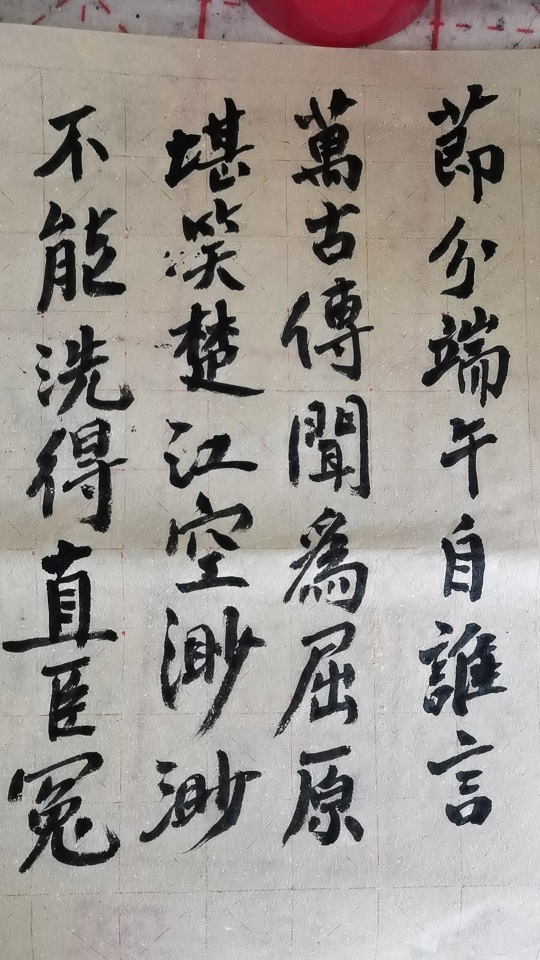 節分端午自誰言
萬古傳聞為屈原
堪笑楚江空渺渺
不能洗得直臣冤